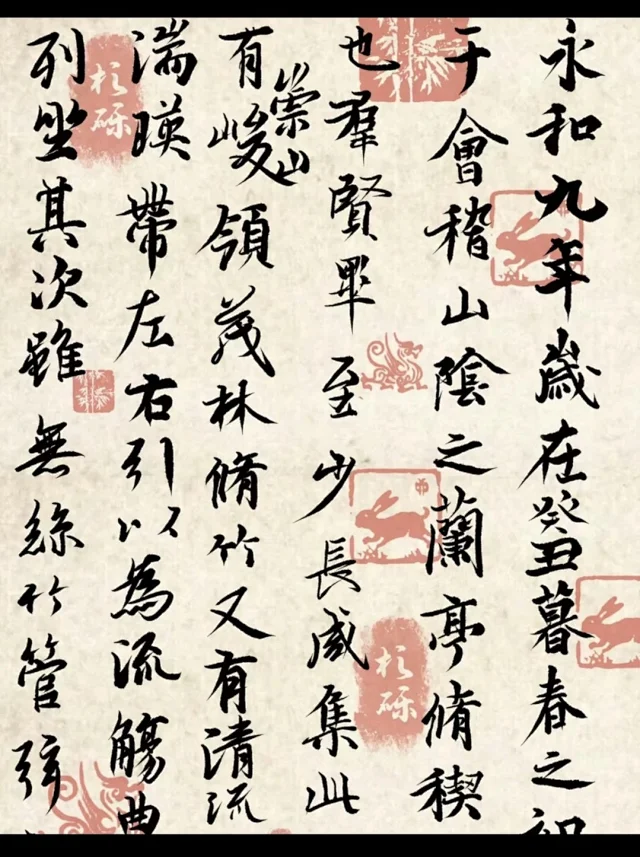 永和九年歲在癸丑暮春之初
于會稽山陰之蘭亭脩稧
也羣賢畢至少長咸集此
有崇山峻領茂林脩竹又有清流
湍暎帶左右引以為流觴曲
列坐其次雖無絲竹管弦
杉砾
杉砾